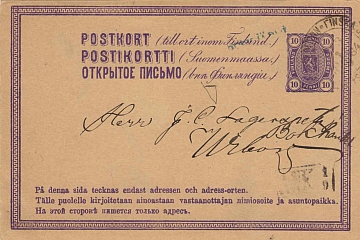 POSTKORT (till ort inom Finland.)
POSTIKORTTI (Suomenmaassa.)
ОТКРЫТОЕ ПИСЬМО (вн. Финляндіи.)
10 10
10 10
Herr J. C.
Wiborg
På denna sida tecknas endast adressen och adress-orten.
Tälle puolelle kirjoitetaan ainoastaan vastaanottajan nimi­osoite ja asuntopaikka.
На этой сторонѣ пишется только адресъ.